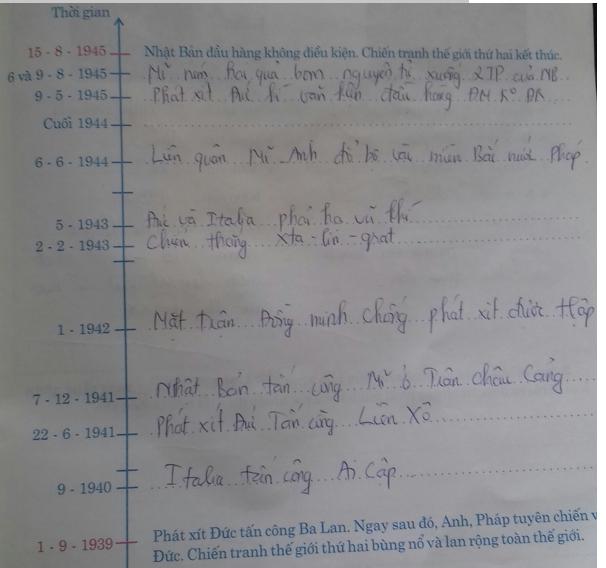 Thời gian
15 - 8 - 1945 Nhật Bản đầu hàng không điều kiện. Chiến tranh thế giới thứ hai kết thúc.
6 và 9 - 8 - 1945 Mĩ ném hai quả bom nguyên tử xuống 2 TP của NB
9 - 5 - 1945 Phát xít Đức kí văn kiện đầu hàng ĐM K° ĐK
Cuối 1944
6 - 6 - 1944 Liên quân Mĩ - Anh đổ bộ vào miền Bắc nước Pháp
5 - 1943 Đức và Italia phải hạ vũ khí
2 - 2 - 1943 Chiến thắng Xta - lin - grat
1 - 1942 Mặt trận Đồng minh chống phát xít được thập
7 - 12 - 1941 Nhật Bản tấn công Mĩ ở Trân Châu Cảng
22 - 6 - 1941 Phát xít Đức Tấn công Liên Xô
9 - 1940 Italia tấn công Ai Cập
1 - 9 - 1939 Phát xít Đức tấn công Ba Lan. Ngay sau đó, Anh, Pháp tuyên chiến v
Đức. Chiến tranh thế giới thứ hai bùng nổ và lan rộng toàn thế giới.